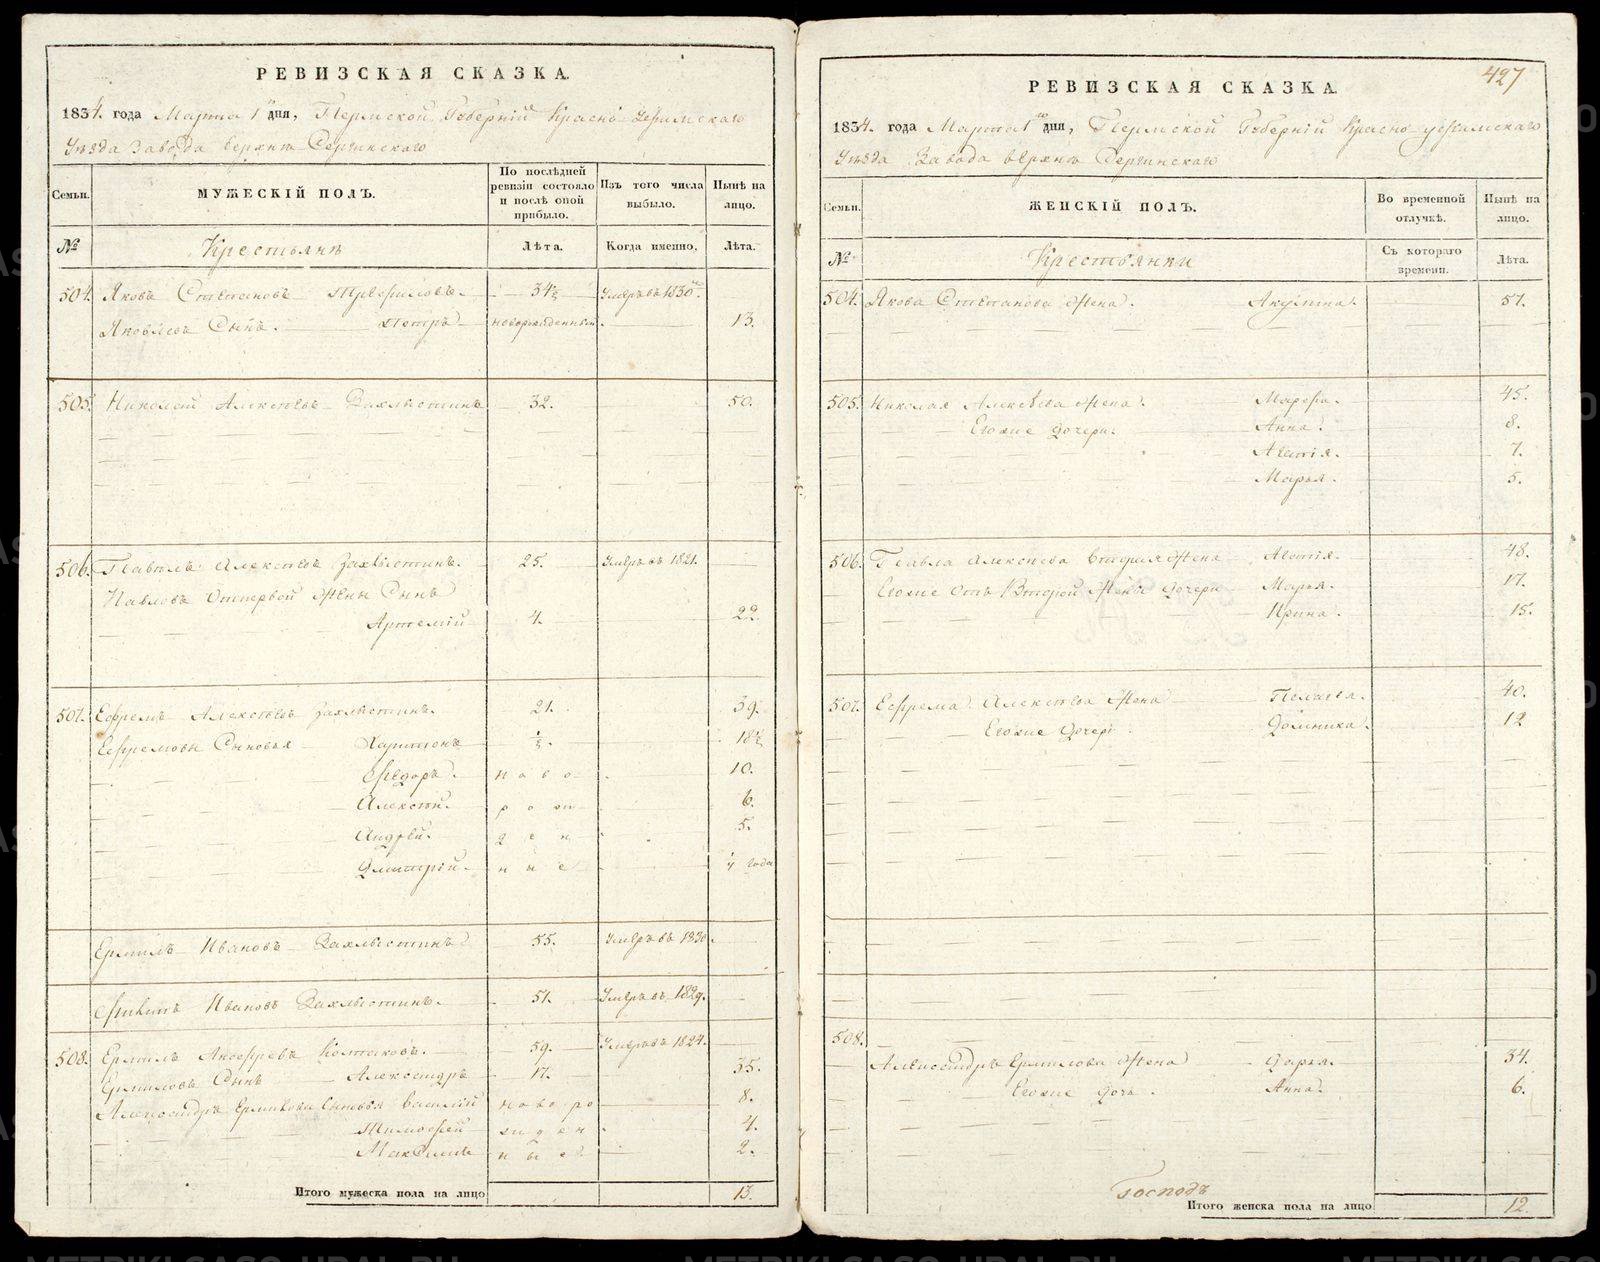 РЕВИЗСКАЯ СКАЗКА.
1834. года Марта 1 дня, Пермской Губерніи Красно Уфимскаго
Уѣзда Завода Верхнѣ Сергинскаго
Семьи. МУЖЕСКІЙ ПОЛЪ. По послѣдней ревизіи состояло и послѣ оной прибыло. Изъ того числа выбыло. Нынѣ на лицо.
№ Крестьянѣ Лѣта. Когда именно. Лѣта.
504. Яковъ Степановъ 34½ Умеръ въ 1830
Яковлевъ Сынъ. Петръ новорожденный. 13.
505. Николай Алексѣевъ Захлыстинъ 32. 50.
506. Павелъ Алексѣевъ Захлыстинъ. 25. Умеръ въ 1821.
Павловъ Отпервой Жены Сынъ
Артемій 4. 22.
507. Ефремъ Алексѣевъ Захлыстинъ. 21. 39.
Ефремовы Сыновья Харитонъ ½. 18½
Ѳедоръ. ново 10.
Алексѣй. рож 6.
Андрей. ден 5.
Дмитрій. ные ¼ года
Ермилъ Ивановъ Захлыстинъ 55. Умеръ въ 1830.
Никита Ивановъ Захлыстинъ. 51. Умеръ въ 1829.
508. Ермилъ 59. Умеръ въ 1824.
Ермиловъ Сынъ Александръ 17. 35.
Александръ Ермилова Сыновья Василій новоро 8.
Тимофей жден 4.
Максимъ ные. 2.
Итого мужеска пола на лицо 13.
427
РЕВИЗСКАЯ СКАЗКА.
1834. года Марта 1 дня, Пермской Губерніи Красно уфимскаго
Уѣзда Завода Верхнѣ Сергинскаго
Семьи. ЖЕНСКІЙ ПОЛЪ. Во временной отлучкѣ. Нынѣ на лицо.
№ Крестьянки Съ котораго времени. Лѣта.
504. Якова Степанова Жена. Акулина. 51.
505. Николая Алексѣева Жена. Марфа. 45.
Егоже Дочери. Анна. 8.
7.
Марья. 5.
506. Павла Алексѣева Вторая Жена 48.
Егоже Отъ Второй Жены Дочери Марья. 17.
Ирина. 15.
507. Ефрема Алексѣева Жена Пелагея. 40.
Егоже Дочери Домника. 12
508.
Александръ Ермилова Жена Дарья. 34.
Егоже Дочь. Анна. 6.
Господъ
Итого женска пола на лицо 12.
METRIKI.GASO-URAL.RU